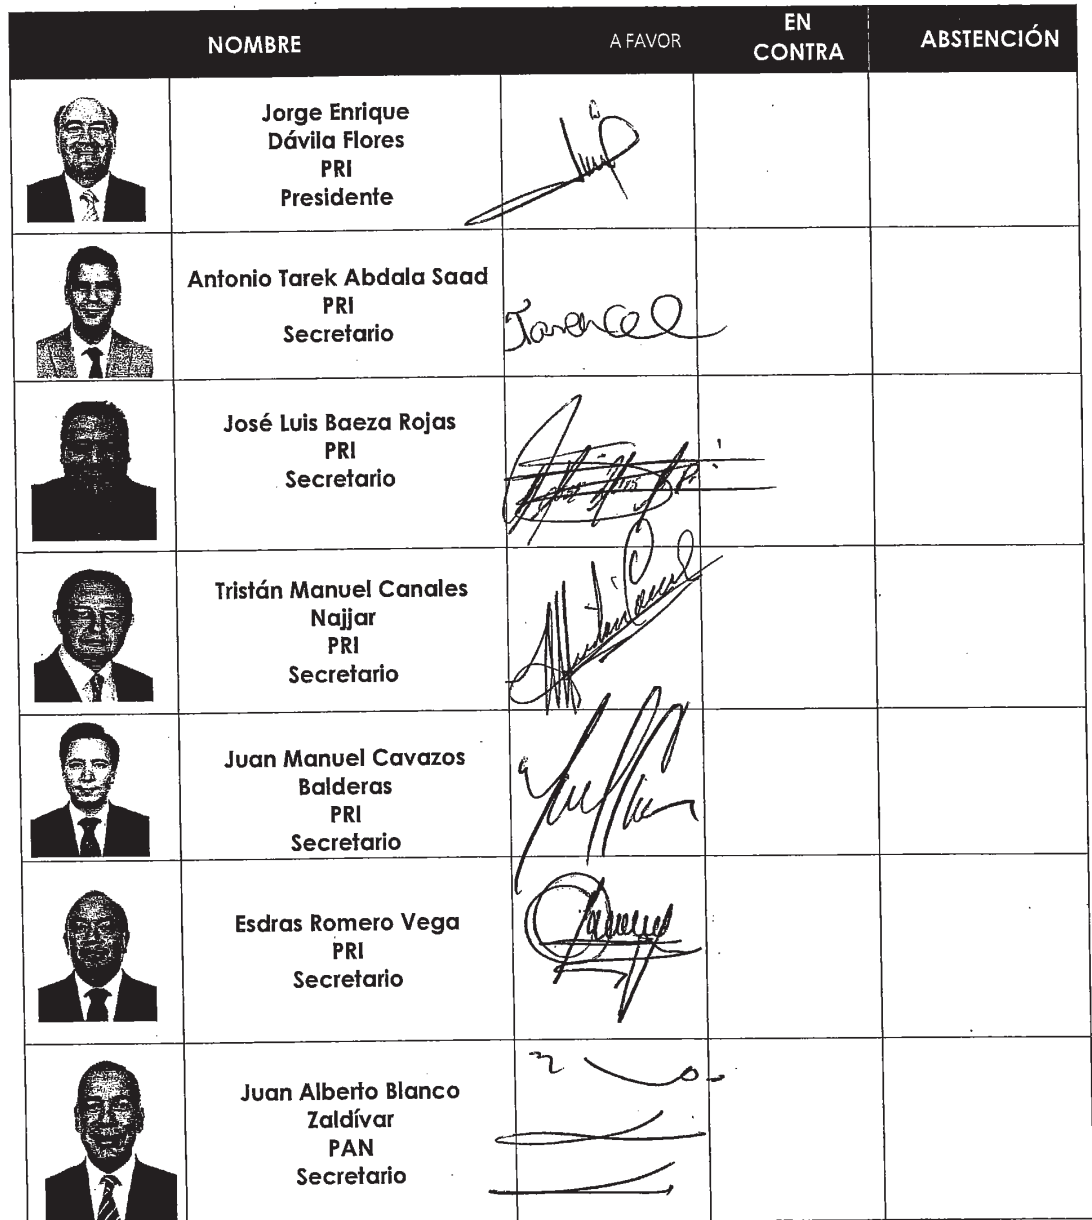 NOMBRE
A FAVOR
EN
CONTRA
ABSTENCIÓN
Jorge Enrique
Dávila Flores
PRI
Presidente
Antonio Tarek Abdala Saad
PRI
Secretario
José Luis Baeza Rojas
PRI
Secretario
Tristán Manuel Canales
Najjar
PRI
Secretario
Juan Manuel Cavazos
Balderas
PRI
Secretario
Esdras Romero Vega
PRI
Secretario
Juan Alberto Blanco
Zaldívar
PAN
Secretario